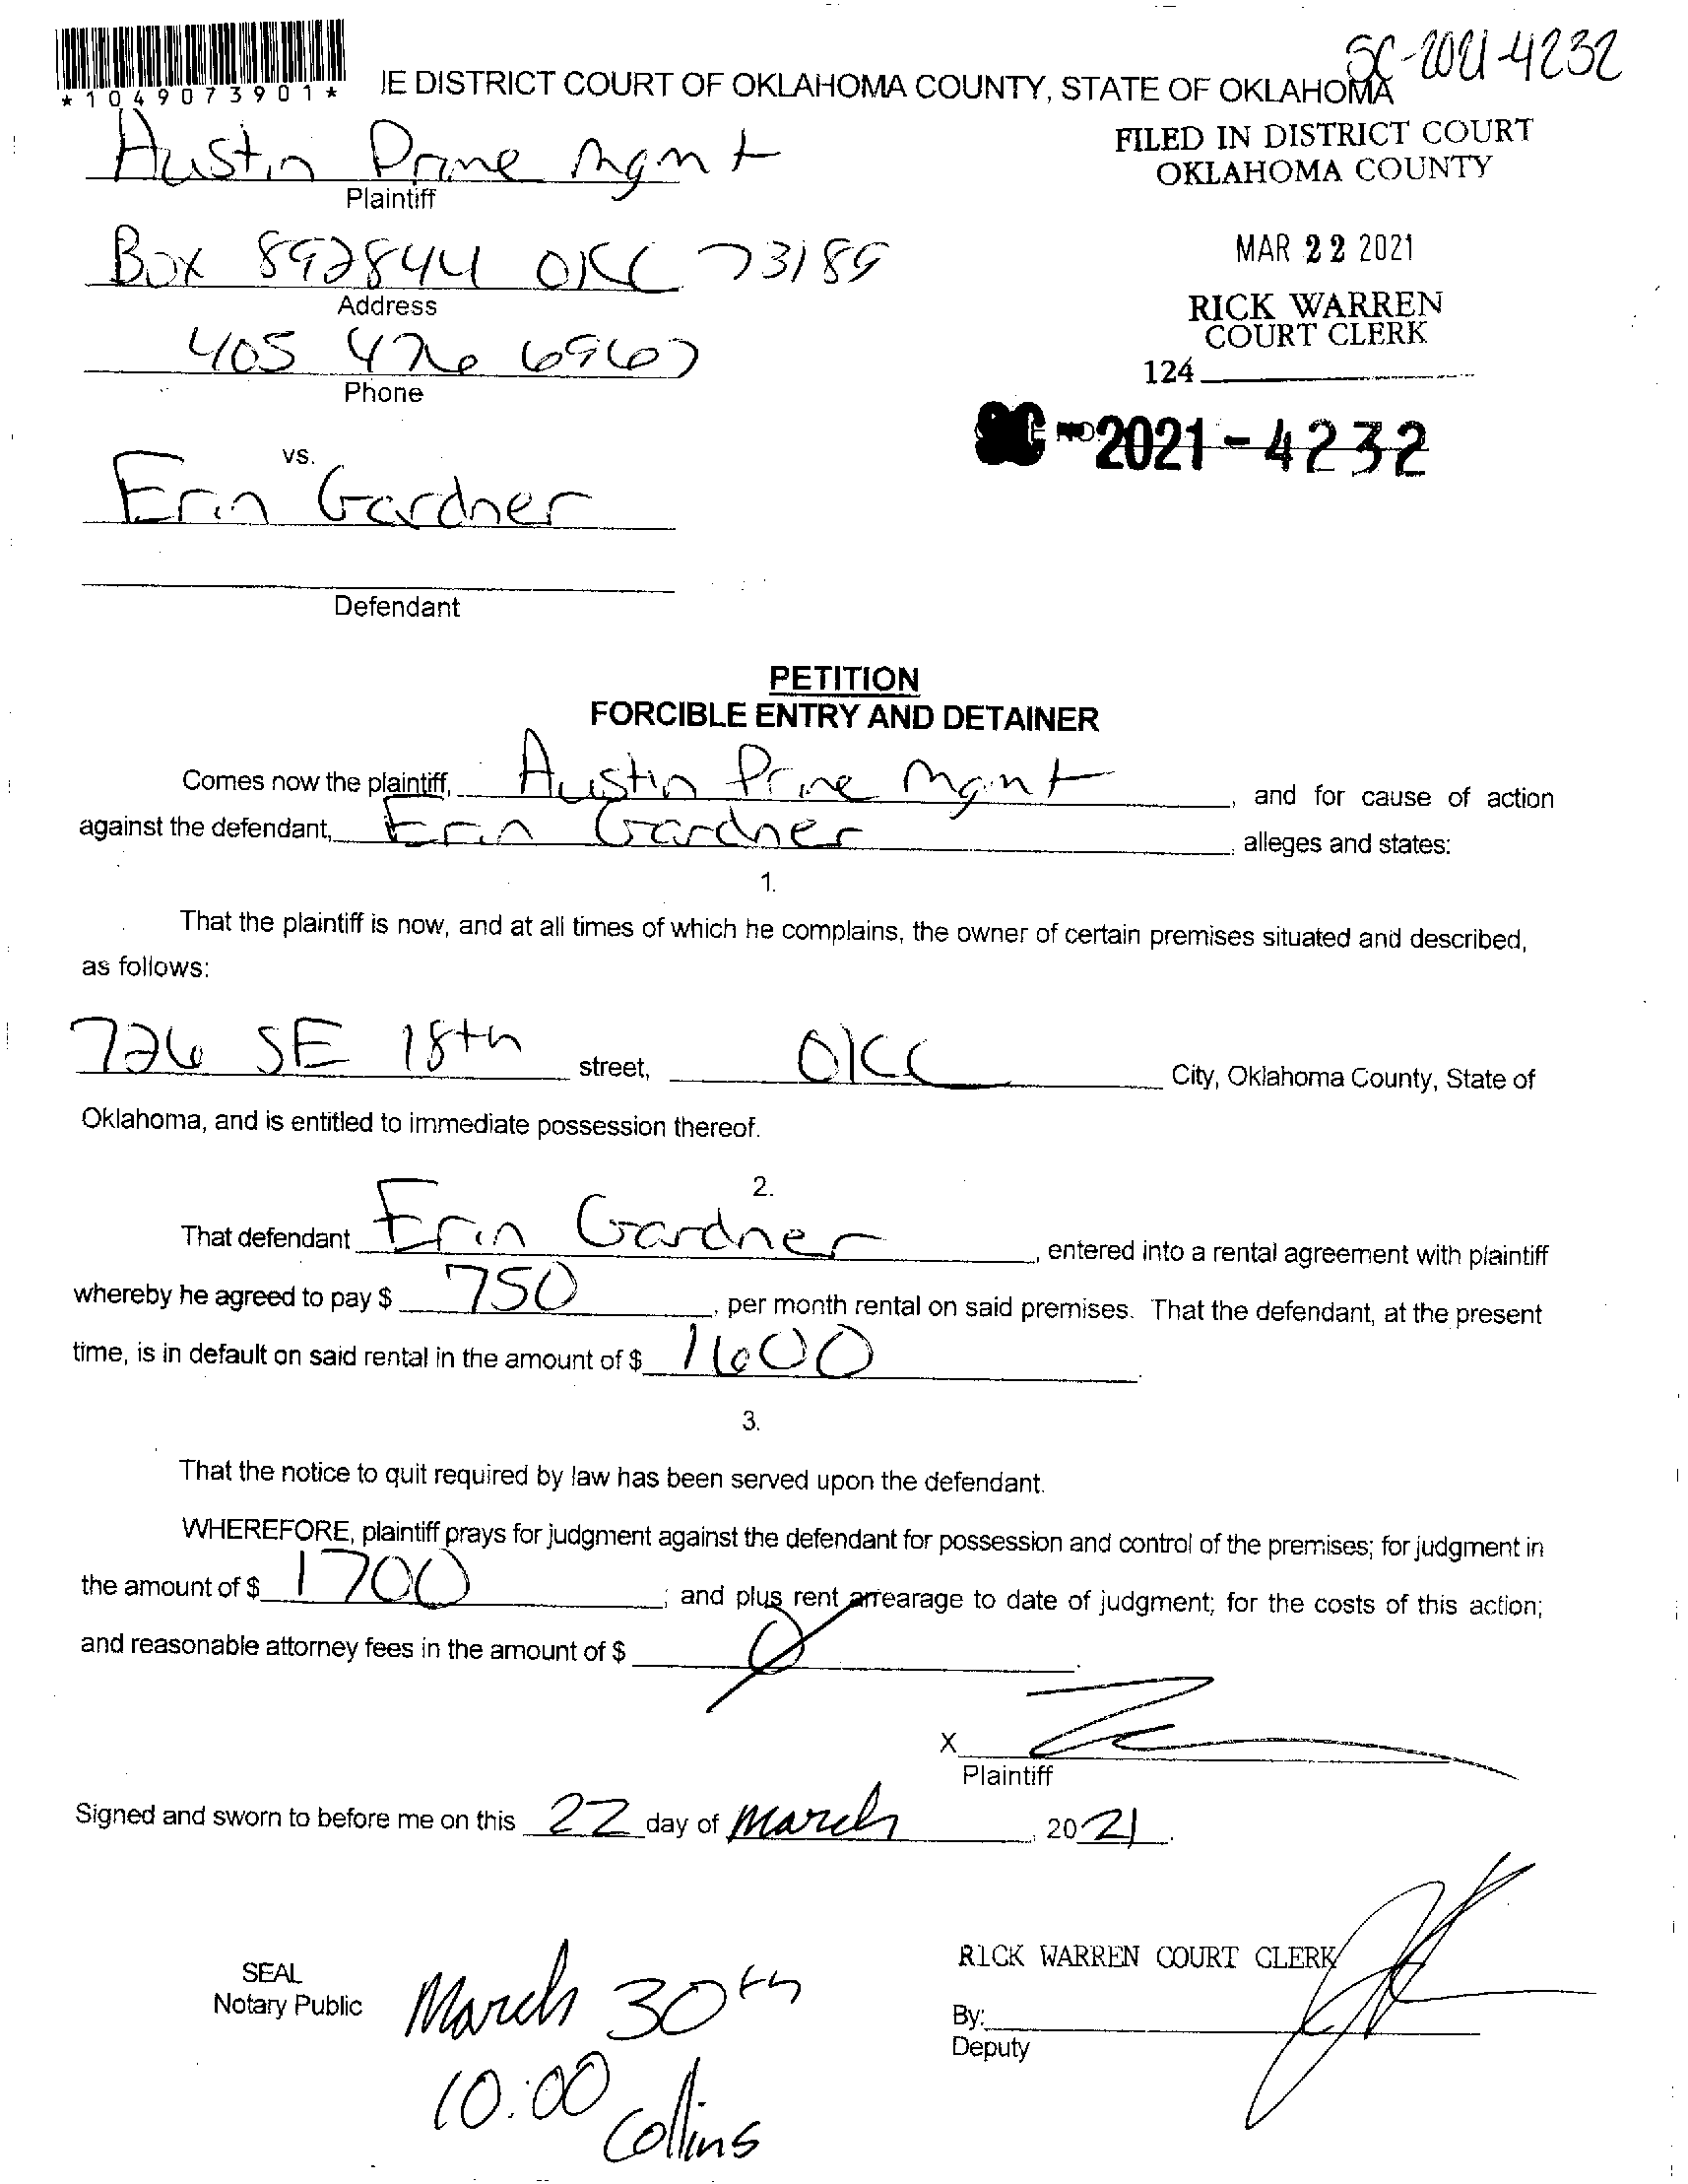 SC-2021-4232
*1049073901*
IE DISTRICT COURT OF OKLAHOMA COUNTY, STATE OF OKLAHOMA
Austin Prime Mgmt
Plaintiff
FILED IN DISTRICT COURT
OKLAHOMA COUNTY
Box 892844 OKC 73189
Address
MAR 22 2021
RICK WARREN
COURT CLERK
405 476 6967
Phone
124
SC-2021-4232
vs.
Erin Gardner
Defendant
PETITION
FORCIBLE ENTRY AND DETAINER
Comes now the plaintiff, Austin Prime Mgmt, and for cause of action
against the defendant, Erin Gardner, alleges and states:
1.
That the plaintiff is now, and at all times of which he complains, the owner of certain premises situated and described,
as follows:
726 SE 18th street, OKC City, Oklahoma County, State of
Oklahoma, and is entitled to immediate possession thereof.
2.
That defendant Erin Gardner, entered into a rental agreement with plaintiff
whereby he agreed to pay $ 750, per month rental on said premises. That the defendant, at the present
time, is in default on said rental in the amount of $ 1600.
3.
That the notice to quit required by law has been served upon the defendant.
WHEREFORE, plaintiff prays for judgment against the defendant for possession and control of the premises; for judgment in
the amount of $ 1700; and plus rent arrearage to date of judgment; for the costs of this action;
and reasonable attorney fees in the amount of $ 0.
X
Plaintiff
Signed and sworn to before me on this 22 day of March, 2021.
SEAL
Notary Public
RICK WARREN COURT CLERK
By:
Deputy
March 30th
10:00
Collins